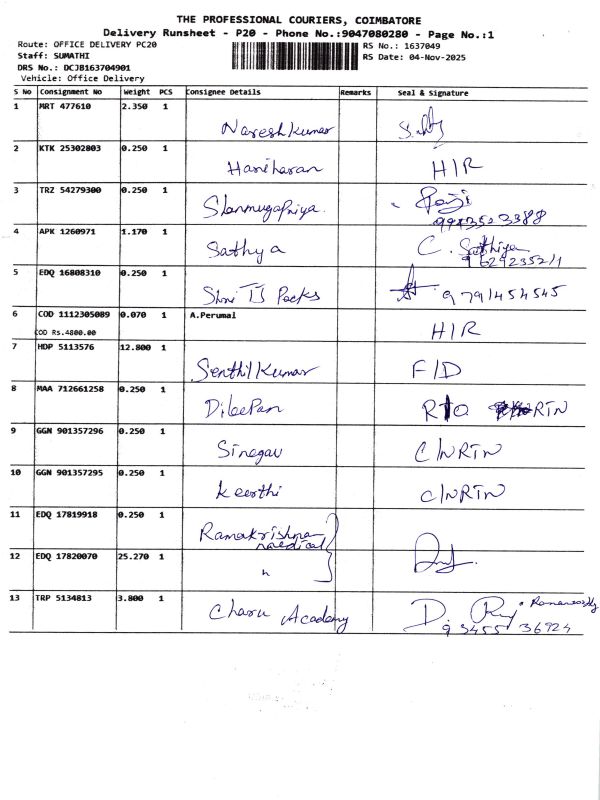 THE PROFESSIONAL COURIERS, COIMBATORE
Delivery Runsheet - P20 - Phone No.:9047080280 - Page No.:1
Route: OFFICE DELIVERY PC20
RS No.: 1637049
Staff: SUMATHI
RS Date: 04-Nov-2025
DRS No.: DCJB163704901
Vehicle: Office Delivery
S No Consignment No Weight PCS Consignee Details Remarks Seal & Signature
1 MRT 477610 2.350 1
Naresh Kumar
2 KTK 25302803 0.250 1
Hariharan H/R
3 TRZ 54279300 0.250 1
Shanmugapriya.
4 APK 1260971 1.170 1
Sathya C. Sathiya
5 EDQ 16808310 0.250 1
Shri TJ Packs 9791454545
6 COD 1112305089 0.070 1 A.Perumal
COD Rs.4800.00 H/R
7 HDP 5113576 12.800 1
Senthil Kumar F/D
8 MAA 712661258 0.250 1
Dileepan RTO RTN
9 GGN 901357296 0.250 1
C/NRTN
10 GGN 901357295 0.250 1
Keerthi C/NRTN
11 EDQ 17819918 0.250 1
Ramakrishna
12 EDQ 17820070 25.270 1
"
13 TRP 5134813 3.800 1
Charu Academy
93455 36924